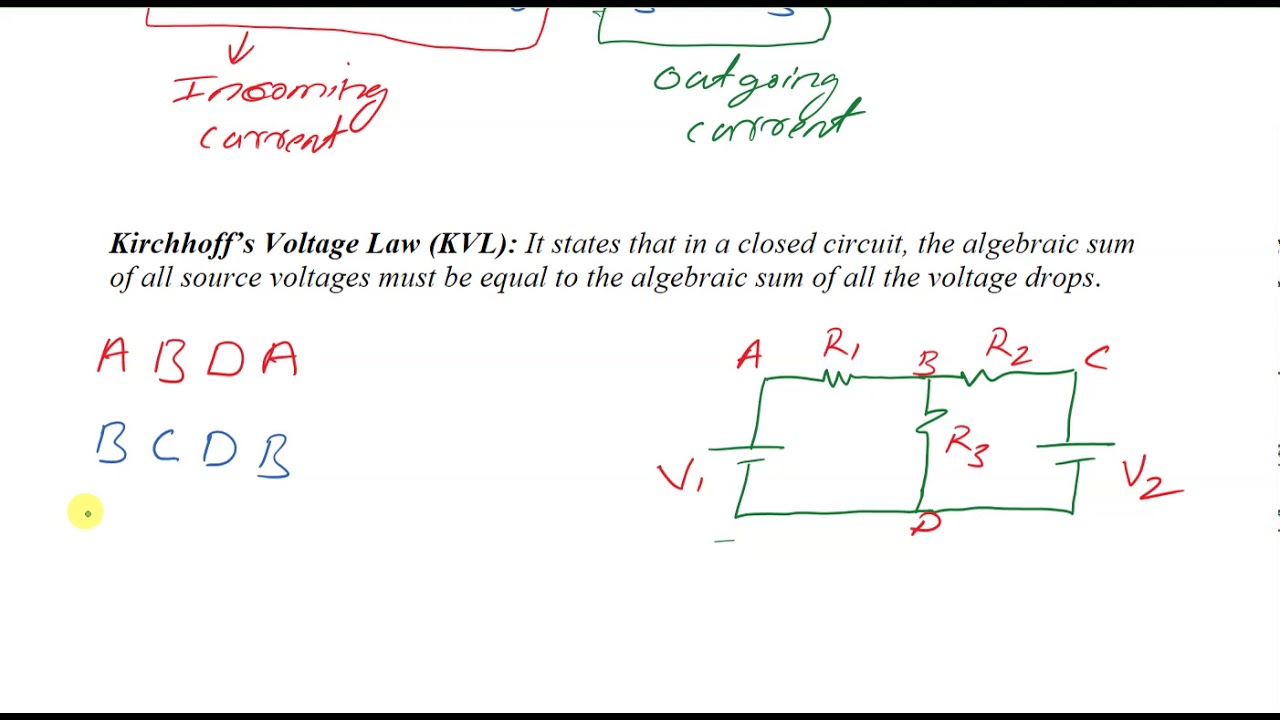 Incoming
current
Outgoing
current
Kirchhoff's Voltage Law (KVL): It states that in a closed circuit, the algebraic sum
of all source voltages must be equal to the algebraic sum of all the voltage drops.
A B D A
B C D B
A R1 B R2 C
R3
V1 V2
D